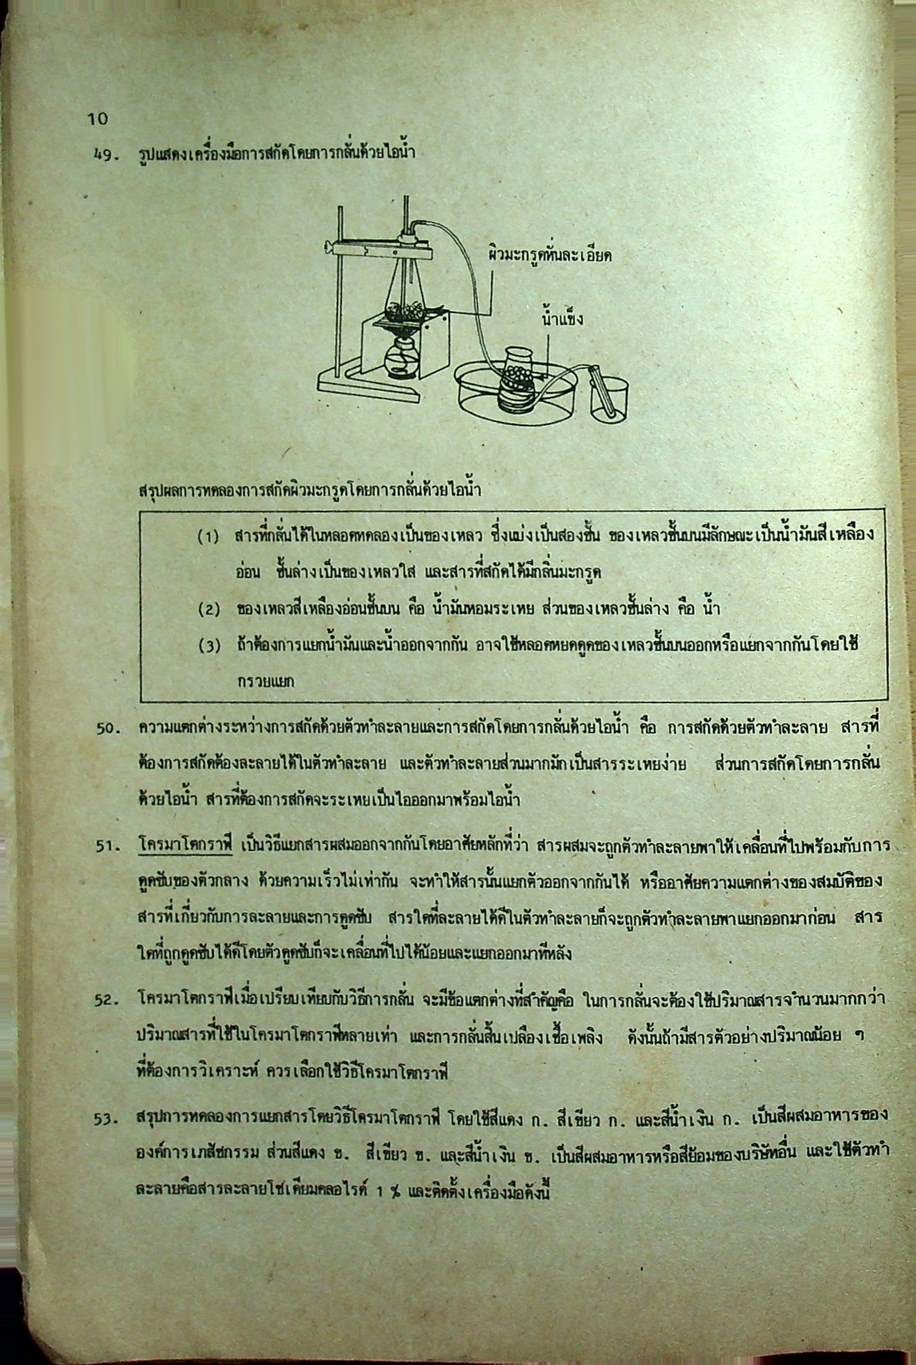 10
49. รูปแสดงเครื่องมือการสกัดโดยการกลั่นด้วยไอน้ำ
ผิวมะกรูดหั่นละเอียด
น้ำแข็ง
สรุปผลการทดลองการสกัดผิวมะกรูดโดยการกลั่นด้วยไอน้ำ
(1) สารที่กลั่นได้ในหลอดทดลองเป็นของเหลว ซึ่งแบ่งเป็นสองชั้น ของเหลวชั้นบนมีลักษณะเป็นน้ำมันสีเหลือง
อ่อน ชั้นล่างเป็นของเหลวใส และสารที่สกัดได้มีกลิ่นมะกรูด
(2) ของเหลวสีเหลืองอ่อนชั้นบน คือ น้ำมันหอมระเหย ส่วนของเหลวชั้นล่าง คือ น้ำ
(3) ถ้าต้องการแยกน้ำมันและน้ำออกจากกัน อาจใช้หลอดหยดดูดของเหลวชั้นบนออกหรือแยกจากกันโดยใช้
กรวยแยก
50. ความแตกต่างระหว่างการสกัดด้วยตัวทำละลายและการสกัดโดยการกลั่นด้วยไอน้ำ คือ การสกัดด้วยตัวทำละลาย สารที่
ต้องการสกัดต้องละลายได้ในตัวทำละลาย และตัวทำละลายส่วนมากมักเป็นสารระเหยง่าย ส่วนการสกัดโดยการกลั่น
ด้วยไอน้ำ สารที่ต้องการสกัดจะระเหยเป็นไอออกมาพร้อมไอน้ำ
51. โครมาโตกราฟี เป็นวิธีแยกสารผสมออกจากกันโดยอาศัยหลักที่ว่า สารผสมจะถูกตัวทำละลายพาให้เคลื่อนที่ไปพร้อมกับการ
ดูดซับของตัวกลาง ด้วยความเร็วไม่เท่ากัน จะทำให้สารนั้นแยกตัวออกจากกันได้ หรืออาศัยความแตกต่างของสมบัติของ
สารที่เกี่ยวกับการละลายและการดูดซับ สารใดที่ละลายได้ดีในตัวทำละลายก็จะถูกตัวทำละลายพาแยกออกมาก่อน สาร
ใดที่ถูกดูดซับได้ดีโดยตัวดูดซับก็จะเคลื่อนที่ไปได้น้อยและแยกออกมาทีหลัง
52. โครมาโตกราฟีเมื่อเปรียบเทียบกับวิธีการกลั่น จะมีข้อแตกต่างที่สำคัญคือ ในการกลั่นจะต้องใช้ปริมาณสารจำนวนมากกว่า
ปริมาณสารที่ใช้ในโครมาโตกราฟีหลายเท่า และการกลั่นสิ้นเปลืองเชื้อเพลิง ดังนั้นถ้ามีสารตัวอย่างปริมาณน้อย ๆ
ที่ต้องการวิเคราะห์ ควรเลือกใช้วิธีโครมาโตกราฟี
53. สรุปการทดลองการแยกสารโดยวิธีโครมาโตกราฟี โดยใช้สีแดง ก. สีเขียว ก. และสีน้ำเงิน ก. เป็นสีผสมอาหารของ
องค์การเภสัชกรรม ส่วนสีแดง ข. สีเขียว ข. และสีน้ำเงิน ข. เป็นสีผสมอาหารหรือสีย้อมของบริษัทอื่น และใช้ตัวทำ
ละลายคือสารละลายโซเดียมคลอไรด์ 1 % และติดตั้งเครื่องมือดังนี้